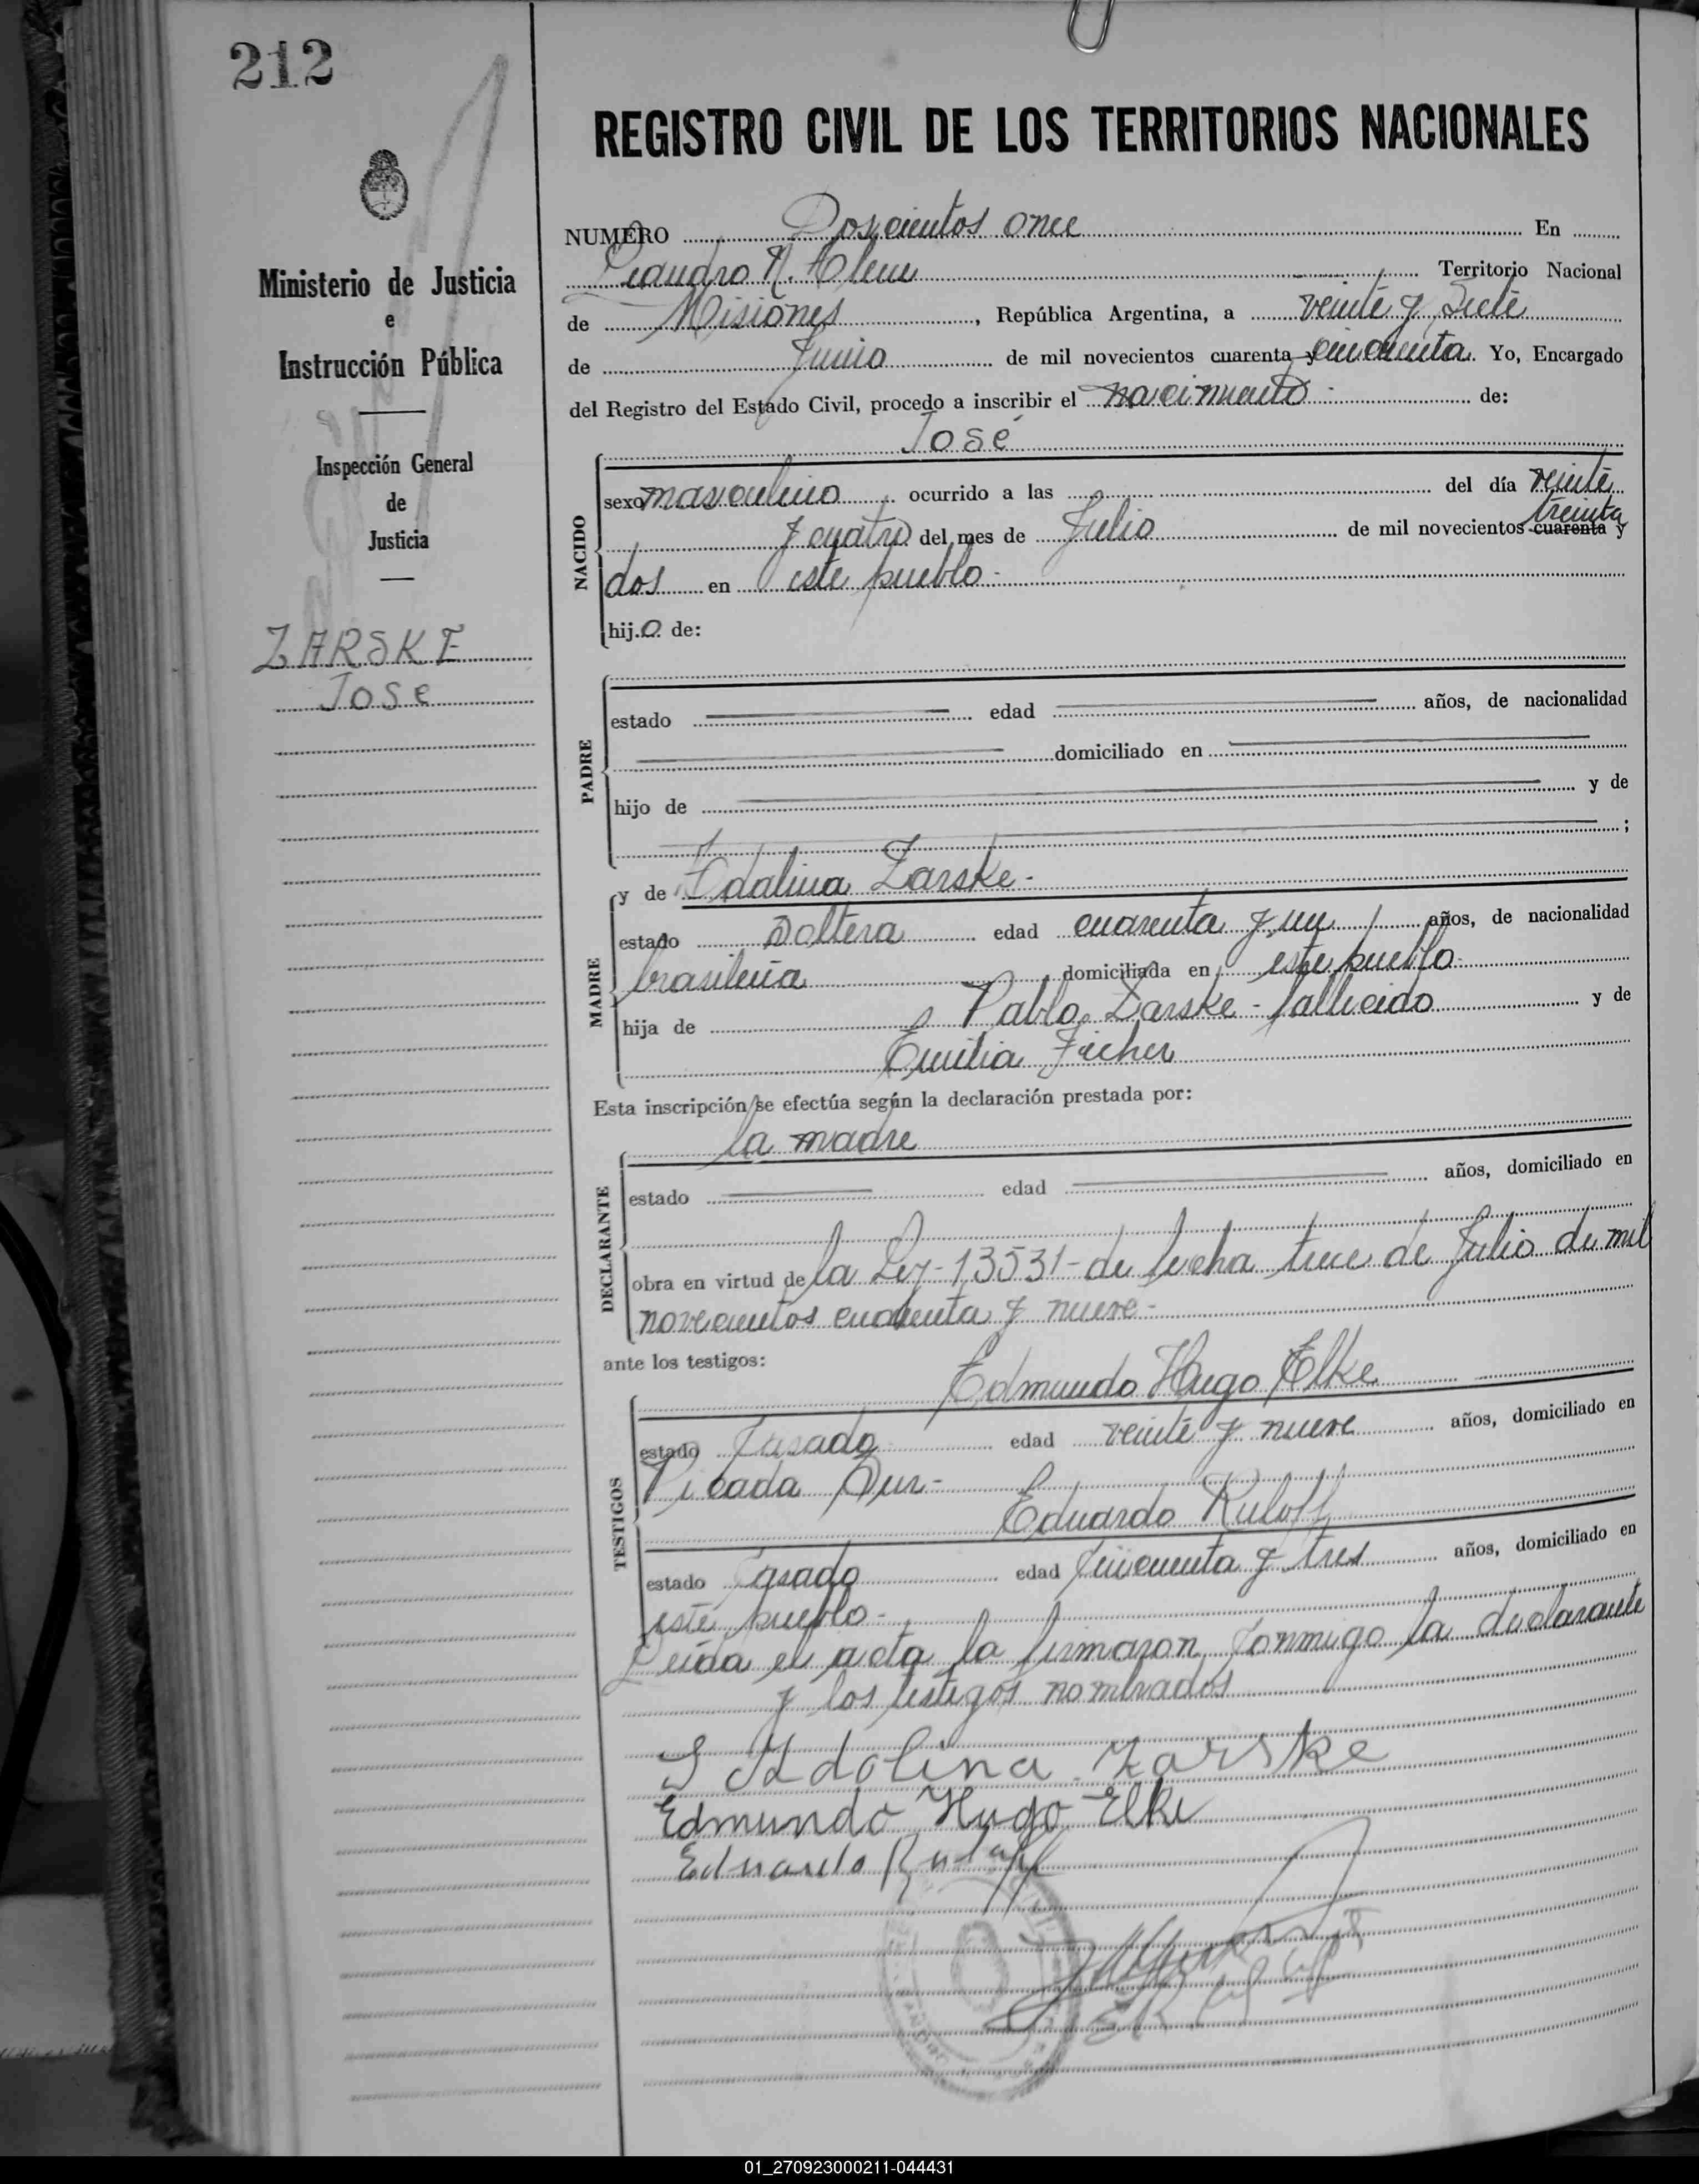 212
REGISTRO CIVIL DE LOS TERRITORIOS NACIONALES
Ministerio de Justicia
e
Instrucción Pública
Inspección General
de
Justicia
ZARSKE
José
NUMERO Doscientos once En
Leandro N. Alem Territorio Nacional
de Misiones, República Argentina, a veinte y siete
de Junio de mil novecientos cuarenta y cincuenta. Yo, Encargado
del Registro del Estado Civil, procedo a inscribir el nacimiento de:
José
NACIDO
sexo masculino ocurrido a las del día veinte
treinta
y cuatro del mes de Julio de mil novecientos cuarenta y
dos en este pueblo-
hijo de:
PADRE
estado edad años, de nacionalidad
domiciliado en
hijo de y de
;
y de Idalina Zarske-
MADRE
estado Soltera edad cuarenta y un años, de nacionalidad
brasileña domiciliada en este pueblo
hija de Pablo Zarske - fallecido y de
Emilia Ficher
Esta inscripción se efectúa según la declaración prestada por:
la madre
DECLARANTE
estado edad años, domiciliado en
obra en virtud de la Ley-13531-de fecha trece de Julio de mil
novecientos cuarenta y nueve-
ante los testigos:
Edmundo Hugo Elke
TESTIGOS
estado Casado edad veinte y nueve años, domiciliado en
Picada Sur-
Eduardo Ruloff
estado Casado edad cincuenta y tres años, domiciliado en
este pueblo-
Leída el acta la firmaron conmigo la declarante
y los testigos nombrados
Idolina Zarske
Edmundo Hugo Elke
Eduardo Ruloff
01_270923000211-044431